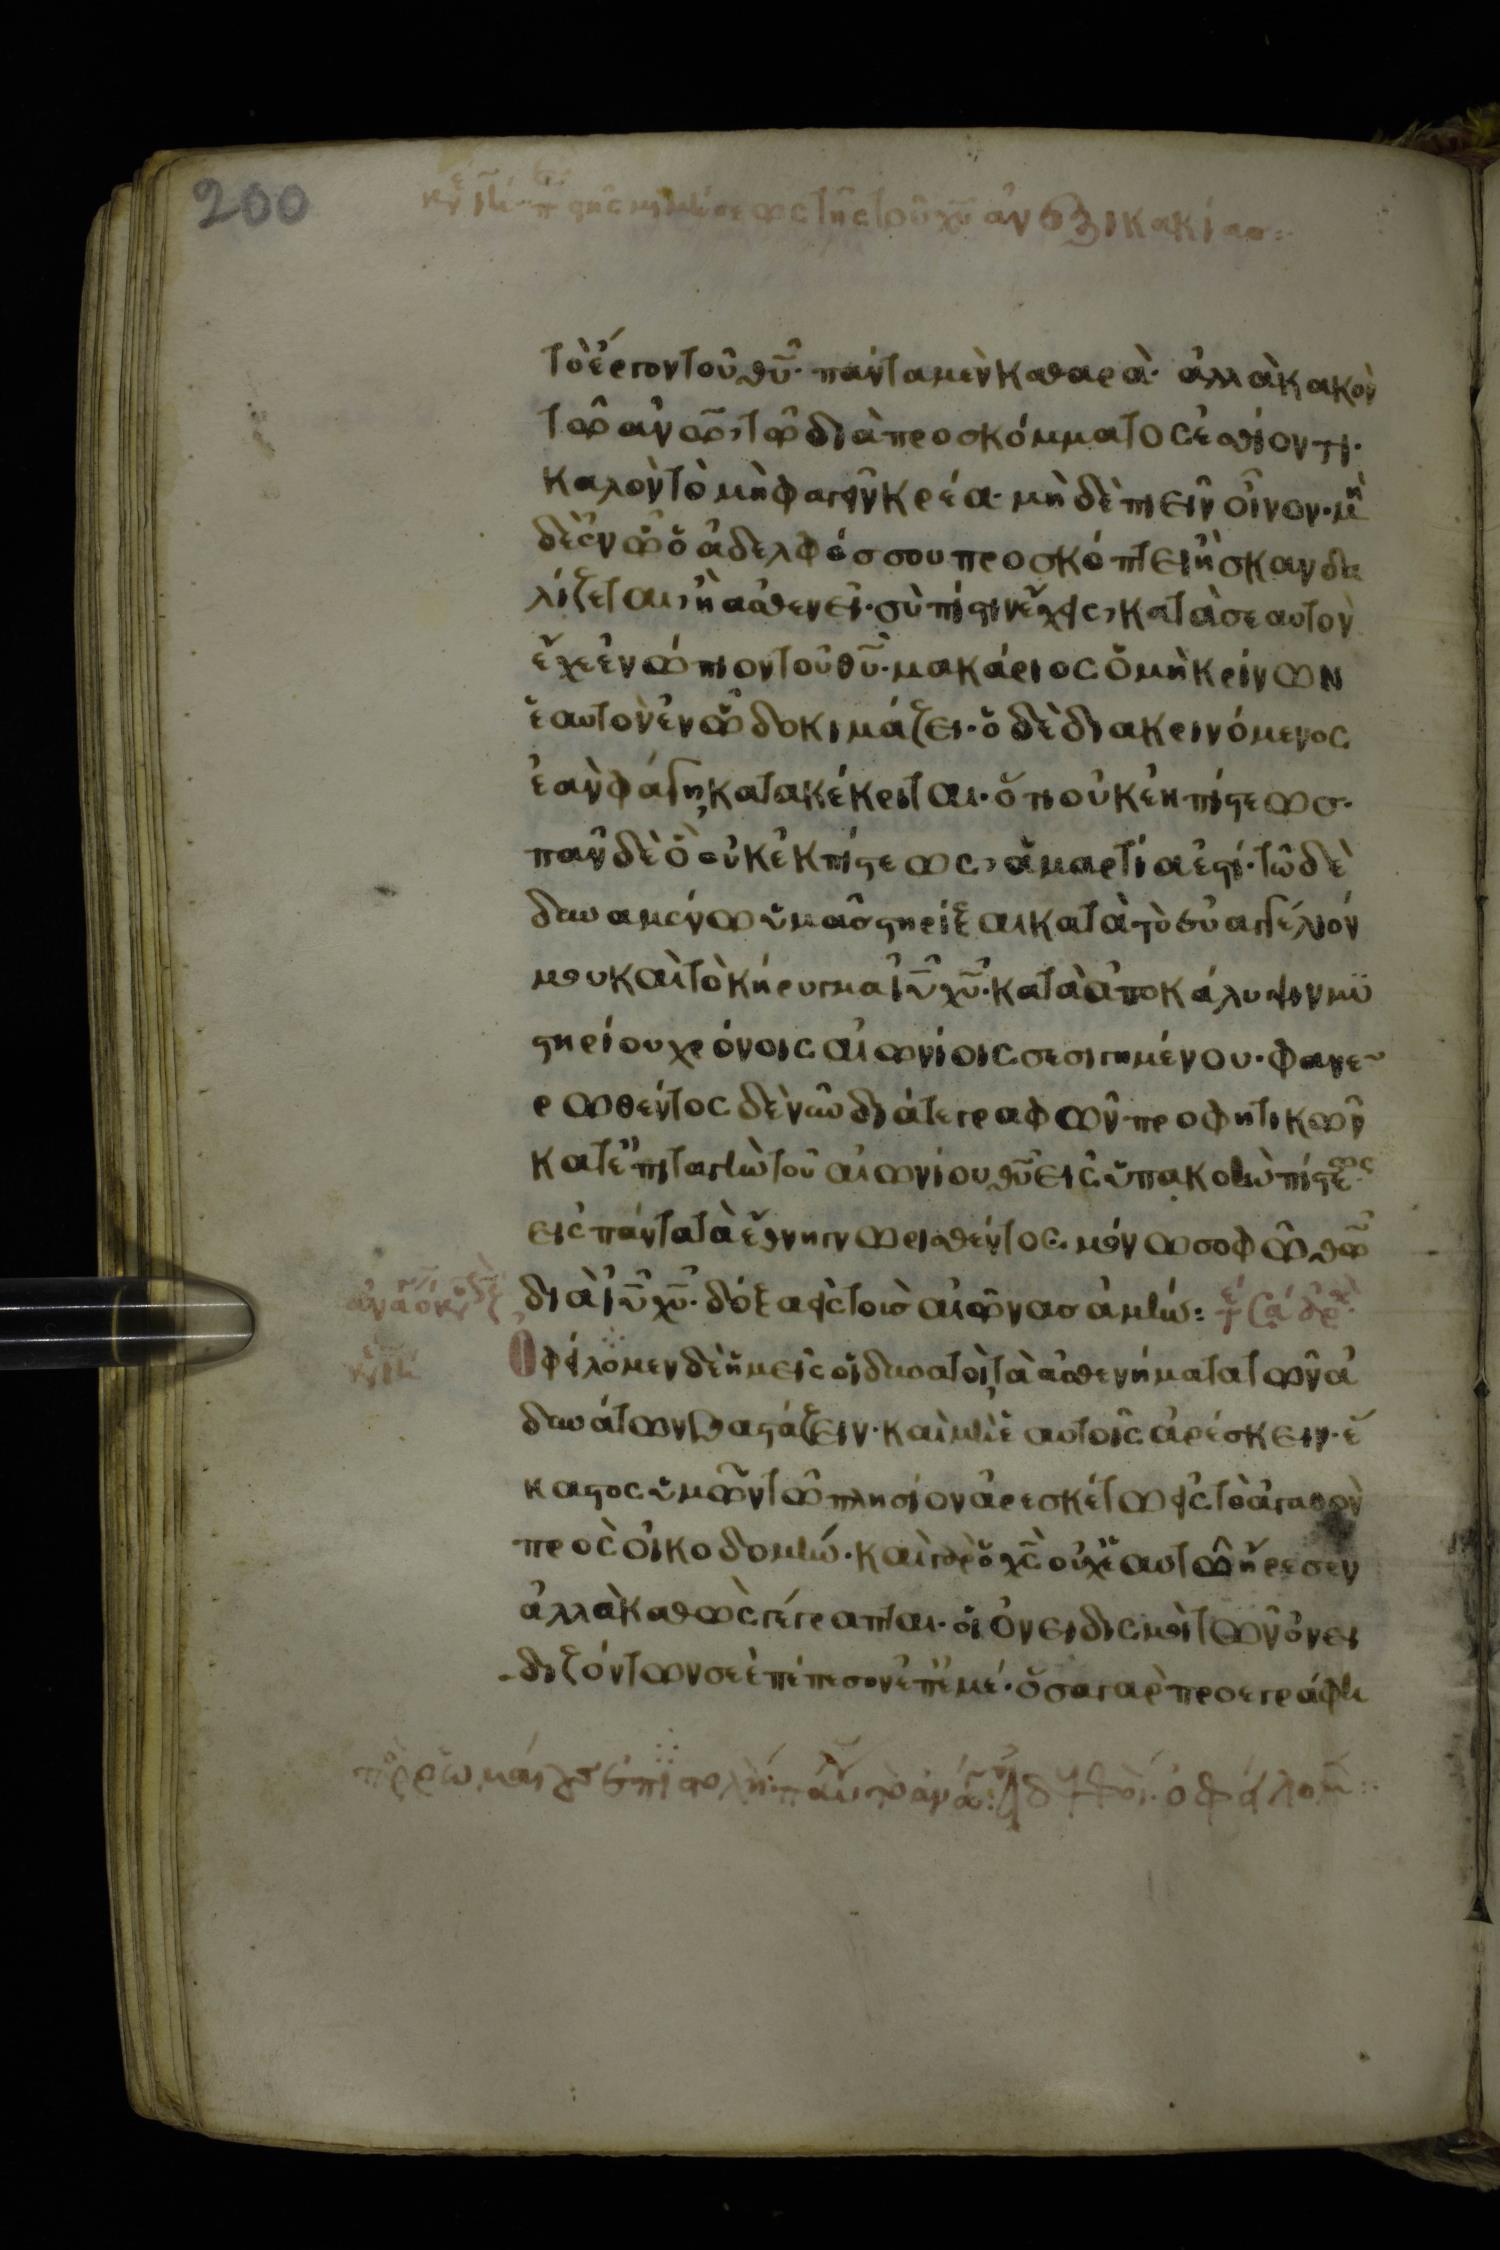 200
τῆς τοῦ χῦ ἀνεξικακίας:
τὸ ἔργον τοῦ θῦ· πάντα μὲν καθαρὰ· ἀλλὰ κακὸν
τῶ ἀνῶ, τῶ διὰ προσκόμματος ἐσθίοντι·
καλὸν τὸ μὴ φαγεῖν κρέα· μὴ δὲ πιεῖν οἶνον· μὴ
δὲ ἐν ὧ ὁ ἀδελφός σου προσκόπτει ἢ σκανδα
λίζεται, ἢ ἀσθενεῖ· σὺ πίστιν ἔχεις, κατὰ σεαυτὸν
ἔχε ἐνώπιον τοῦ θῦ· μακάριος ὁ μὴ κρίνων
ἑαυτὸν ἐν ὧ δοκιμάζει· ὁ δὲ διακρινόμενος
ἐὰν φάγη, κατακέκριται· ὅτι οὐκ ἐκ πίστεως·
πᾶν δὲ ὃ οὐκ ἐκ πίστεως, ἁμαρτία ἐστί· τῶ δὲ
δυναμένω ὑμᾶς στηρίξαι κατὰ τὸ εὐαγγέλιόν
μου καὶ τὸ κήρυγμα ἰῦ χῦ· κατὰ ἀποκάλυψιν μυ
στηρίου χρόνοις αἰωνίοις σεσιγημένου· φανε
ρωθέντος δὲ νῦν διά τε γραφῶν προφητικῶν
κατ' ἐπιταγὴν τοῦ αἰωνίου θῦ εἰς ὑπακοὴν πίστεως
εἰς πάντα τὰ ἔθνη γνωρισθέντος μόνω σοφῶ θῶ
διὰ ἰῦ χῦ· δόξα εἰς τοὺς αἰῶνας ἀμήν:
Ὀφείλομεν δὲ ἡμεῖς οἱ δυνατοὶ, τὰ ἀσθενήματα τῶν ἀ
δυνάτων βαστάζειν· καὶ μὴ ἑαυτοῖς ἀρέσκειν· ἕ
καστος ὑμῶν τῶ πλησίον ἀρεσκέτω εἰς τὸ ἀγαθὸν
πρὸς οἰκοδομήν· καὶ γὰρ ὁ χς οὐχ ἑαυτῶ ἤρεσεν
ἀλλὰ καθὼς γέγραπται· οἱ ὀνειδισμοὶ τῶν ὀνει
διζόντων σε ἐπέπεσον ἐπ' ἐμέ· ὅσα γὰρ προεγράφη